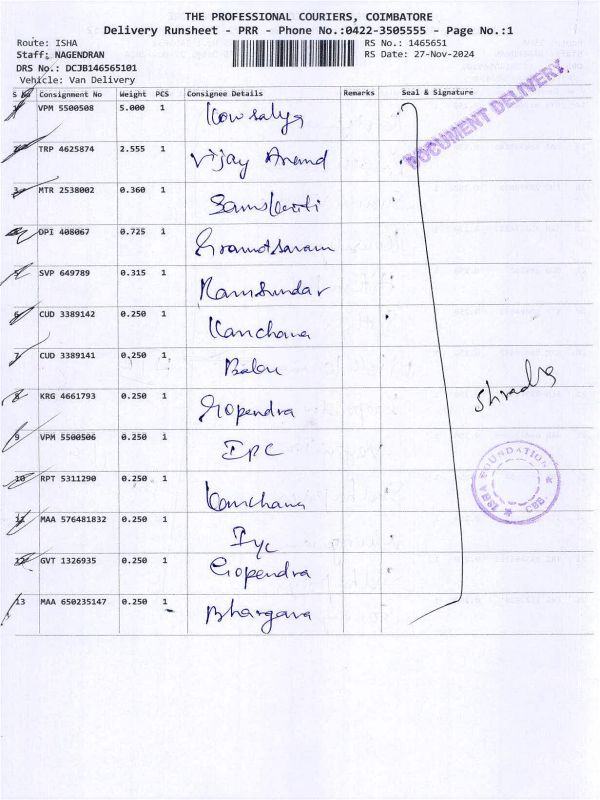 THE PROFESSIONAL COURIERS, COIMBATORE
Delivery Runsheet - PRR - Phone No.:0422-3505555 - Page No.:1
Route: ISHA
RS No.: 1465651
Staff: NAGENDRAN
RS Date: 27-Nov-2024
DRS No.: DCJB146565101
Vehicle: Van Delivery
S No Consignment No Weight PCS Consignee Details Remarks Seal & Signature
DOCUMENT DELIVERY.
1 VPM 5500508 5.000 1 Kowsalya
2 TRP 4625874 2.555 1 Vijay Anand
3 MTR 2538002 0.360 1 Samskriti
4 DPI 408067 0.725 1
5 SVP 649789 0.315 1 Ramsundar
6 CUD 3389142 0.250 1 Kanchana
7 CUD 3389141 0.250 1 Balu
8 KRG 4661793 0.250 1 Gopendra
9 VPM 5500506 0.250 1 IPC
10 RPT 5311290 0.250 1 Kanchana
11 MAA 576481832 0.250 1 Iyc
12 GVT 1326935 0.250 1 Gopendra
13 MAA 650235147 0.250 1 Bhargava
ISHA FOUNDATION
CBE.